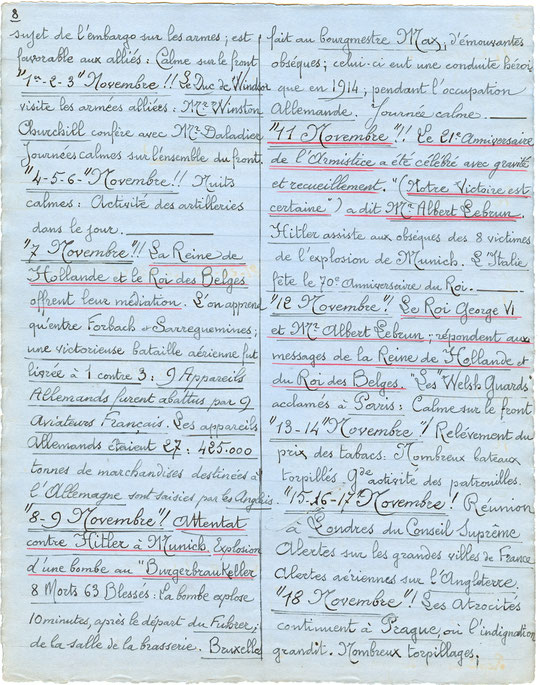 8
sujet de l'embargo sur les armes ; est
favorable aux alliés : Calme sur le front
"1er-2-3" Novembre !! Le Duc de Windsor
visite les armées alliées : Mr Winston
Churchill confère avec Mr Daladier
Journées calmes sur l'ensemble du front.
"4-5-6-" Novembre !! Nuits
calmes : Activité des artilleries
dans le jour.
"7 Novembre" !! La Reine de
Hollande et le Roi des Belges
offrent leur médiation. L'on apprend
qu'entre Forbach & Sarreguemines ;
une victorieuse bataille aérienne fut
livrée à 1 contre 3 : 9 Appareils
Allemands furent abattus par 9
Aviateurs Français. Les appareils
Allemands étaient 27 : 425.000
tonnes de marchandises destinées à
l'Allemagne sont saisies par les Anglais.
"8-9 Novembre" ! Attentat
contre Hitler à Munich. Explosion
d'une bombe au "Burgerbraukeller
8 Morts 63 Blessés : La bombe explose
10 minutes, après le départ du Fuhrer ;
de la salle de la brasserie. Bruxelle
fait au bourgmestre Max, d'émouvantes
obsèques ; celui-ci eut une conduite héroï
que en 1914, pendant l'occupation
Allemande. Journée calme.
"11 Novembre" !! Le 21e Anniversaire
de l'Armistice a été célébré avec gravité
et recueillement. "(Notre Victoire est
certaine") a dit Mr Albert Lebrun.
Hitler assiste aux obsèques des 8 victimes
de l'explosion de Munich. L'Italie
fête le 70e Anniversaire du Roi.
"12 Novembre" ! Le Roi George VI
et Mr Albert Lebrun ; répondent aux
messages de la Reine de Hollande et
du Roi des Belges. "Les "Welsh Guards"
acclamés à Paris : Calme sur le front
"13-14" Novembre" ! Relévement du
prix des tabacs. Nombreux bateaux
torpillés Gde activité des patrouilles.
"15-16-17" Novembre" ! Réunion
à Londres du Conseil Suprême
Alertes sur les grandes villes de France
Alertes aériennes sur l'Angleterre.
"18 Novembre" ! Les Atrocités
continuent à Prague, où l'indignation
grandit. Nombreux torpillages ;